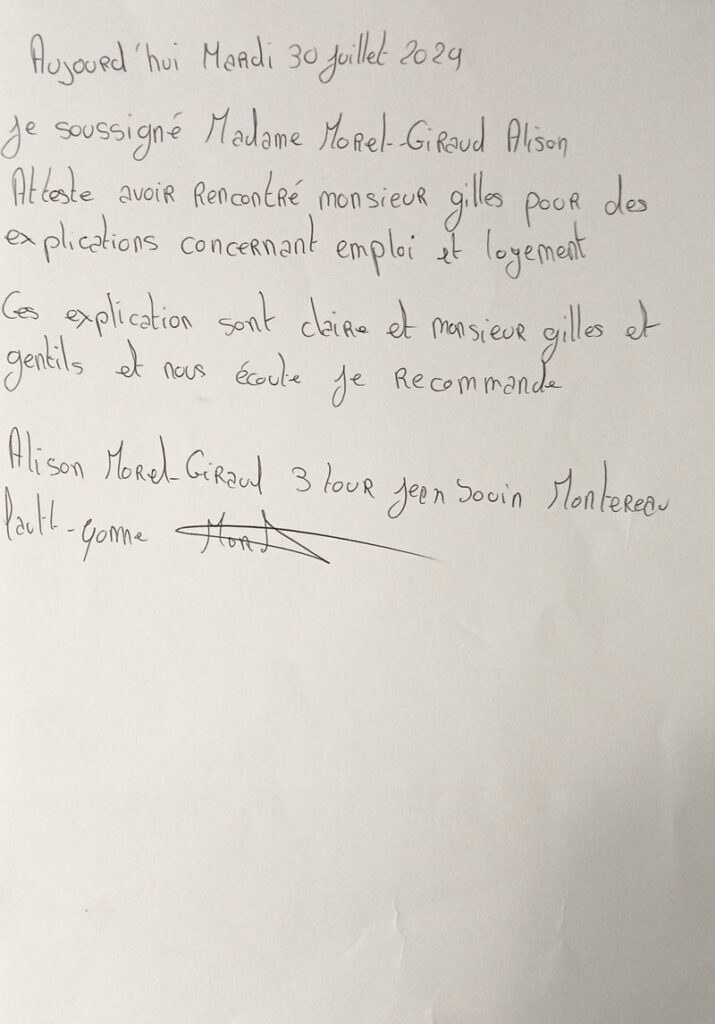 Aujourd'hui Mardi 30 juillet 2024
Je soussigné Madame Morel-Giraud Alison
Atteste avoir rencontré monsieur gilles pour des
explications concernant emploi et logement
Ces explication sont claire et monsieur gilles et
gentils et nous écoute je recommande
Alison Morel-Giraud 3 tour jean Montereau
fault-yonne